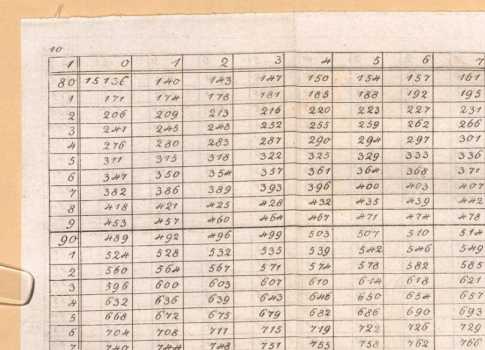 10
1 0 1 2 3 4 5 6 7
80 15136 140 143 147 150 154 157 161
1 171 174 178 181 185 188 192 195
2 206 209 213 216 220 223 227 231
3 241 245 248 252 255 259 262 266
4 276 280 283 287 290 294 297 301
5 311 315 318 322 325 329 333 336
6 347 350 354 357 361 364 368 371
7 382 386 389 393 396 400 403 407
8 418 421 425 428 432 435 439 442
9 453 457 460 464 467 471 474 478
90 489 492 496 499 503 507 510 514
1 524 528 532 535 539 542 546 549
2 560 564 567 571 574 578 582 585
3 596 600 603 607 610 614 618 621
4 632 636 639 643 646 650 654 657
5 668 672 675 679 682 686 690 693
6 704 708 711 715 719 722 726 729
7 740 744 748 751 755 758 762 766